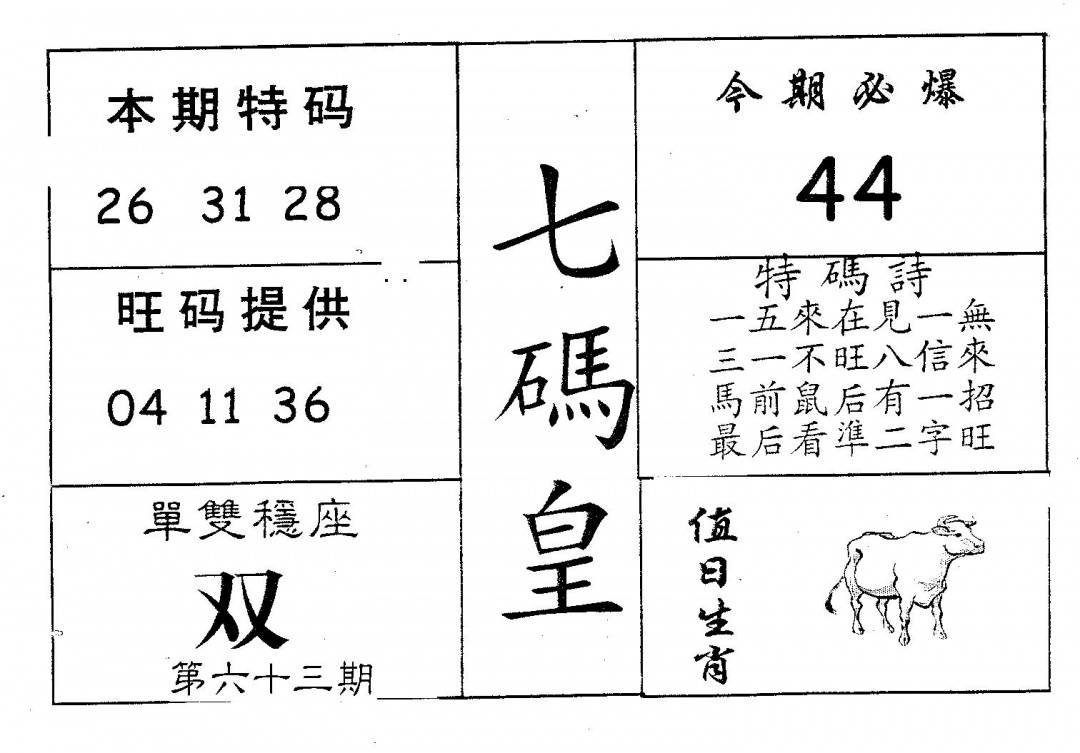 本期特码
26 31 28
旺码提供
04 11 36
單雙穩座
双
第六十三期
七碼皇
今期必爆
44
特碼詩
一五來在見一無
三一不旺八信來
馬前鼠后有一招
最后看準二字旺
值日生肖